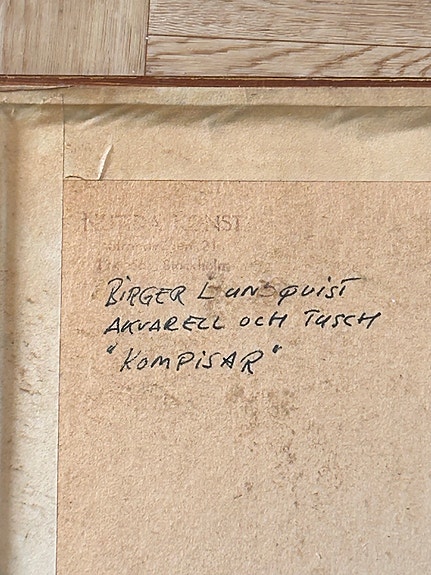 KONST
21
BIRGER LUNDQVIST
AKVARELL OCH TUSCH
"KOMPISAR"